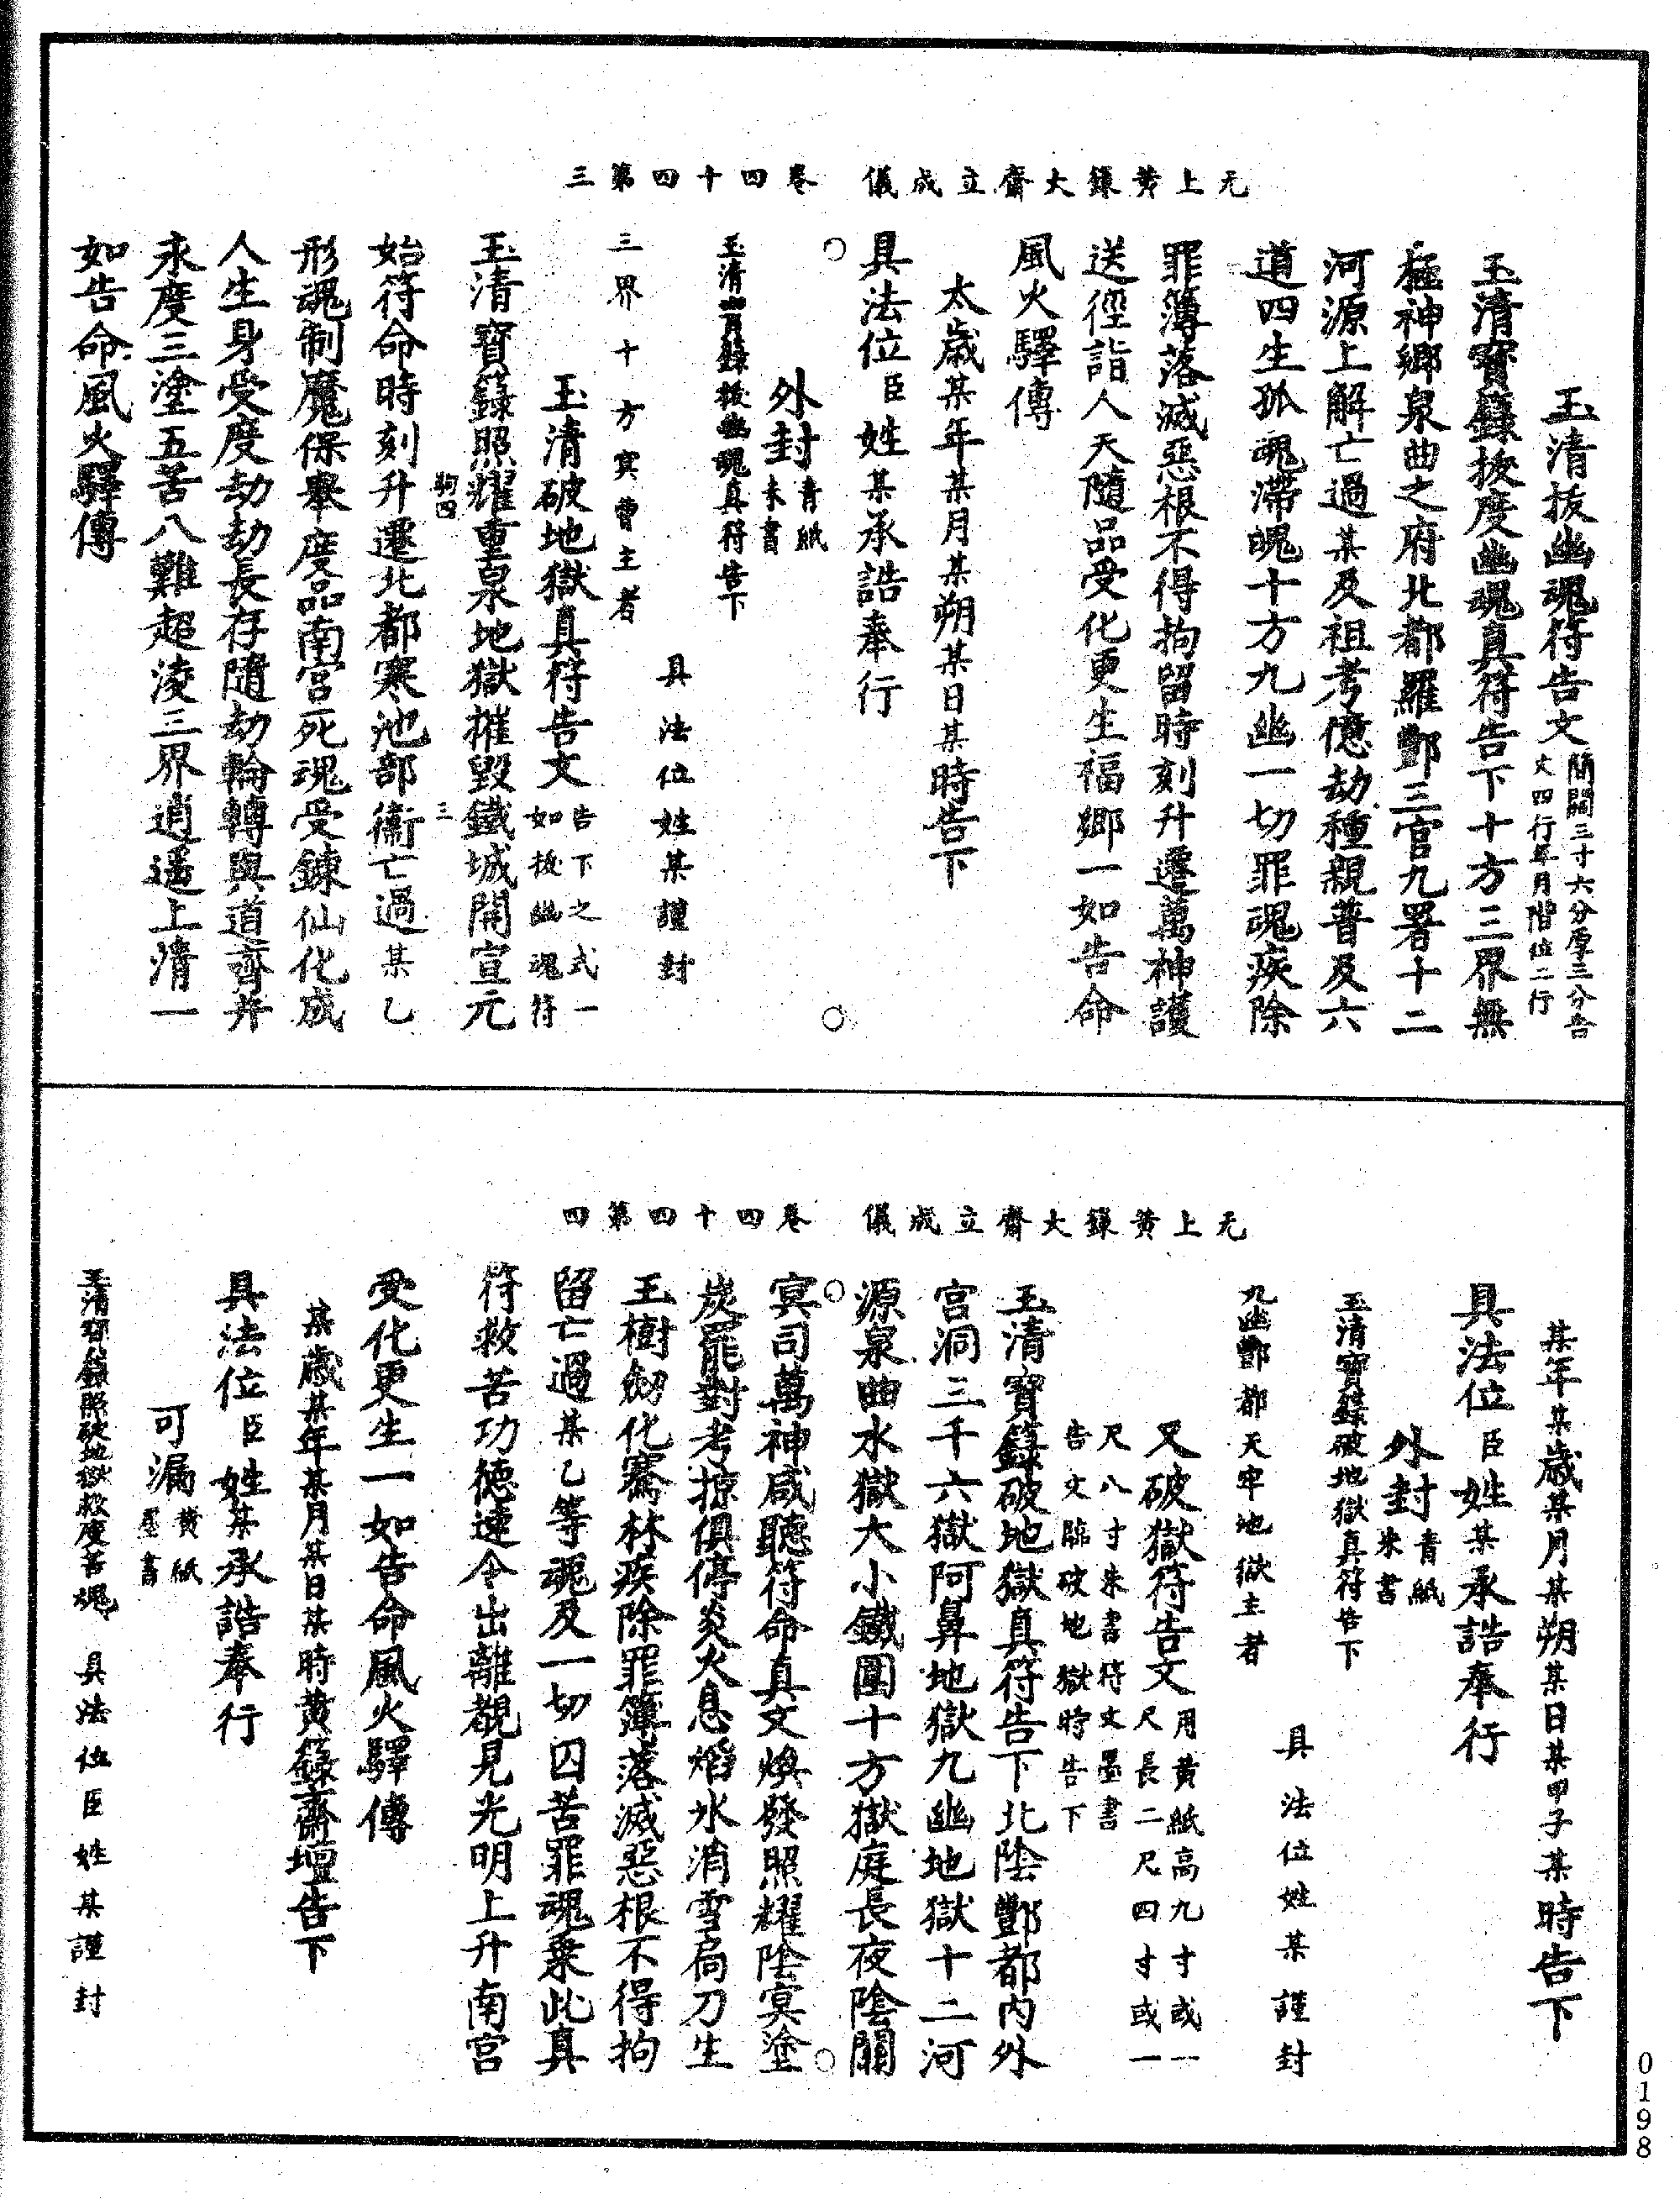 无上黃籙大齋立成儀　卷四十四第三
玉清拔幽魂符告文簡闊三寸六分厚三分告文四行年月階位二行
玉清寶籙拔度幽魂真符告下十方三界無
極神鄉泉曲之府北都羅酆三官九署十二
河源上解亡過某及祖考億劫種親普及六
道四生孤魂滯魄十方九幽一切罪魂疾除
罪簿落滅惡根不得拘留時刻升遷萬神護
送徑詣人天隨品受化更生福鄉一如告命
風火驛傳
太歲某年某月某朔某日某時告下
具法位臣姓某承誥奉行
外封青紙朱書
玉清寶籙拔幽魂真符告下
三界十方冥曹主者
具法位姓某謹封
玉清破地獄真符告文告下之式一如拔幽魂符
玉清寶籙照耀重泉地獄摧毀鐵城開宣元
三
始符命時刻升遷北都寒池部衞亡過某乙
形魂制魔保舉度品南宮死魂受鍊仙化成
人生身受度劫劫長存隨劫輪轉與道齊并
永度三塗五苦八難超凌三界逍遙上清一
如告命風火驛傳
无上黃籙大齋立成儀　卷四十四第四
某年某歲某月某朔某日某甲子某時告下
具法位臣姓某承誥奉行
外封青紙朱書
玉清寶籙破地獄真符告下
九幽酆都天牢地獄主者
具法位姓某謹封
又破獄符告文用黃紙高九寸或一尺長二尺四寸或一
尺八寸朱書符文墨書告文臨破地獄時告下
玉清寶籙破地獄真符告下北陰酆都內外
宮洞三千六獄阿鼻地獄九幽地獄十二河
源泉曲水獄大小鐵圍十方獄庭長夜陰關
冥司萬神咸聽符命真文煥發照耀陰冥塗
炭罷對考掠俱停炎火息焰冰消雪扃刀生
玉樹劒化騫林疾除罪簿落滅惡根不得拘
留亡過某乙等魂及一切囚苦罪魂乘此真
符救苦功德速令出離覩見光明上升南宮
受化更生一如告命風火驛傳
某歲某年某月某日某時黃籙齋壇告下
具法位臣姓某承誥奉行
可漏黃紙墨書
玉清寶籙照破地獄救度苦魂　具法位臣姓某謹封
0198